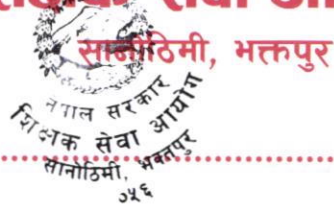 सेवा आ
सानोठिमी, भक्तपुर
नेपाल सरकार
शिक्षक सेवा आयोग
सानोठिमी, भक्तपुर
०५६